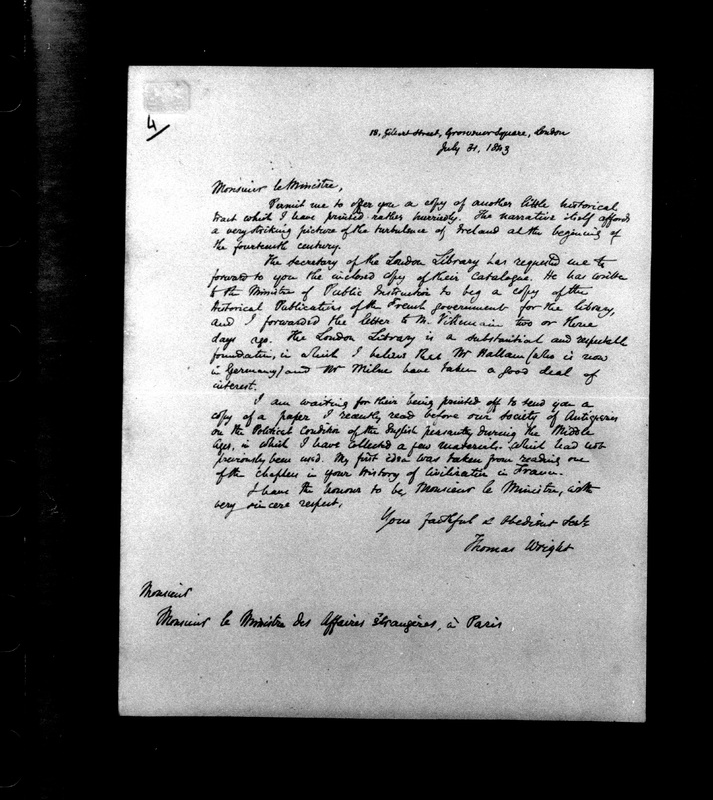 4
18, Gilbert Street, Grosvenor Square, London
July 31, 1843
Monsieur le Ministre,
Permit me to offer you a copy of another little historical
tract which I have printed rather hurriedly. The narrative itself affords
a very striking picture of the turbulence of Ireland at the beginning of
the fourteenth century.
The secretary of the London Library has requested me to
forward to you the inclosed copy of their Catalogue. He has written
to the Minister of Public Instruction to beg a copy of the
Historical Publications of the French government for the library,
and I forwarded the letter to M. Villemain two or three
days ago. The London Library is a substantial and respectable
foundation, in which I believe that Mr Hallam (who is now
in Germany) and Mr Milne have taken a good deal of
interest.
I am waiting for their being printed off to send you a
copy of a paper I recently read before our Society of Antiquaries
on the Political Condition of the English peasantry during the Middle
Ages, in which I have collected a few materials which had not
previously been used. My first idea was taken from reading one
of the chapters in your History of Civilization in France.
I have the honour to be, Monsieur le Ministre, with
very sincere respect,
Your faithful & obedient Servt
Thomas Wright
Monsieur
Monsieur le Ministre des Affaires étrangères, à Paris